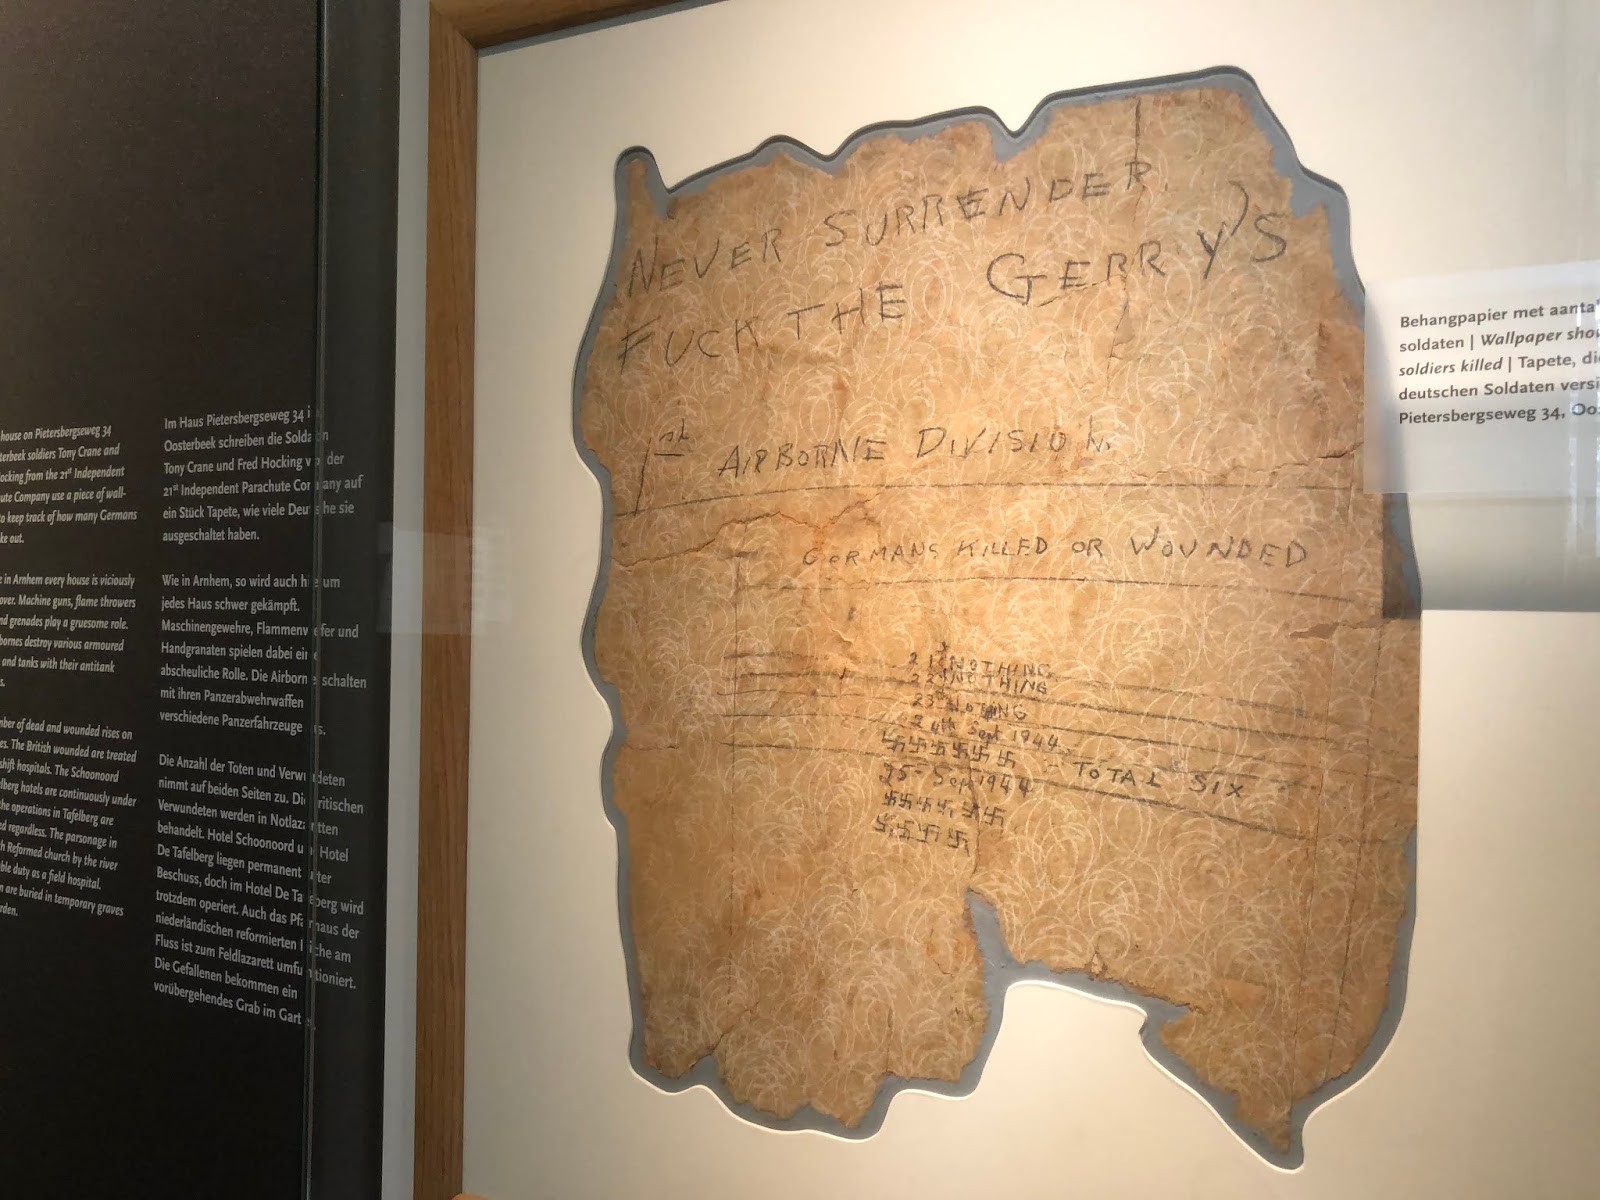 house on Pietersbergseweg 34
terbeek soldiers Tony Crane and
ocking from the 21st Independent
ute Company use a piece of wall-
to keep track of how many Germans
ke out.
e in Arnhem every house is viciously
over. Machine guns, flame throwers
nd grenades play a gruesome role.
bornes destroy various armoured
and tanks with their antitank
s.
mber of dead and wounded rises on
es. The British wounded are treated
shift hospitals. The Schoonoord
elberg hotels are continuously under
the operations in Tafelberg are
ed regardless. The parsonage in
h Reformed church by the river
ble duty as a field hospital.
n are buried in temporary graves
rden.
Im Haus Pietersbergseweg 34 i
Oosterbeek schreiben die Solda n
Tony Crane und Fred Hocking v der
21st Independent Parachute Company auf
ein Stück Tapete, wie viele Deutsche sie
ausgeschaltet haben.
Wie in Arnhem, so wird auch hier um
jedes Haus schwer gekämpft.
Maschinengewehre, Flammenwerfer und
Handgranaten spielen dabei eine
abscheuliche Rolle. Die Airborne schalten
mit ihren Panzerabwehrwaffen
verschiedene Panzerfahrzeuge aus.
Die Anzahl der Toten und Verwundeten
nimmt auf beiden Seiten zu. Die britischen
Verwundeten werden in Notlazaretten
behandelt. Hotel Schoonoord und Hotel
De Tafelberg liegen permanent unter
Beschuss, doch im Hotel De Tafelberg wird
trotzdem operiert. Auch das Pfarrhaus der
niederländischen reformierten Kirche am
Fluss ist zum Feldlazarett umfunktioniert.
Die Gefallenen bekommen ein
vorübergehendes Grab im Garten.
NEVER SURRENDER.
FUCK THE GERRY'S
1st AIRBORNE DIVISION.
GORMANS KILLED OR WOUNDED
21st NOTHING
22nd NOTHING
23rd NOTING
24th Sept 1944
卐卐卐卐卐卐 - TOTAL SIX
25- Sept 1944
卐卐卐卐 卐卐
卐卐卐卐
Behangpapier met aantal
soldaten | Wallpaper sho
soldiers killed | Tapete, di
deutschen Soldaten versi
Pietersbergseweg 34, Oo